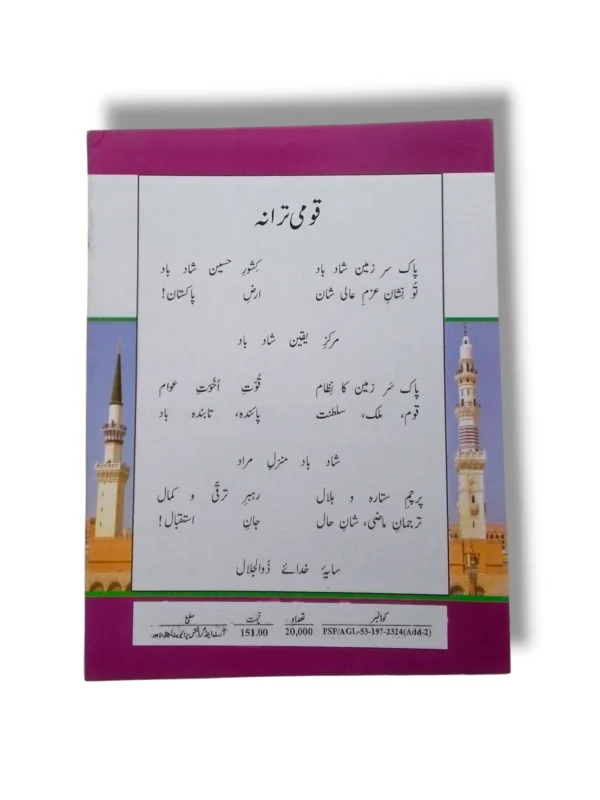 قومی ترانہ
پاک سر زمین شاد باد کِشورِ حسین شاد باد
تُو نِشانِ عزمِ عالی شان ارضِ پاکستان!
مرکزِ یقین شاد باد
پاک سَر زمین کا نِظام قُوّتِ اُخُوّتِ عوام
قوم، ملک، سلطنت پائندہ، تابندہ باد
شاد باد منزلِ مراد
پرچمِ ستارہ و ہلال رہبرِ ترقّی و کمال
ترجمانِ ماضی، شانِ حال جانِ استقبال!
سایۂ خدائے ذُوالجلال
کوڈ نمبر تعداد قیمت مطبع
PSP/AGL-53-197-2324(Add-2) 20,000 151.00 لاہور